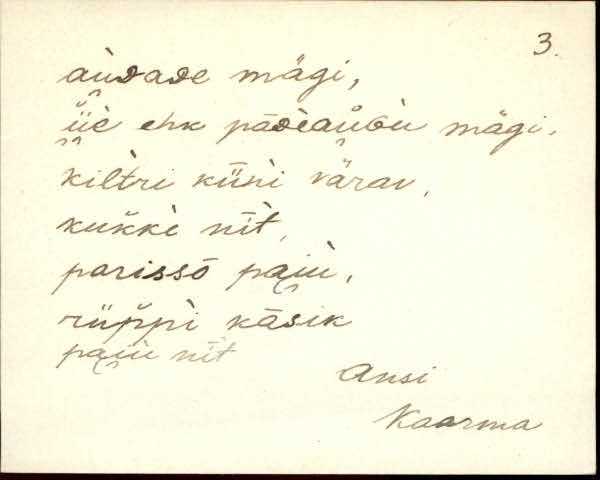 3.
aùdade mägi,
üè ehk pädèaùbù mägi,
kìltri küǹi värav,
kukkì nīt,
parissō pajù,
rüppì kāsik
pajù nīt
Ansi
Kaarma